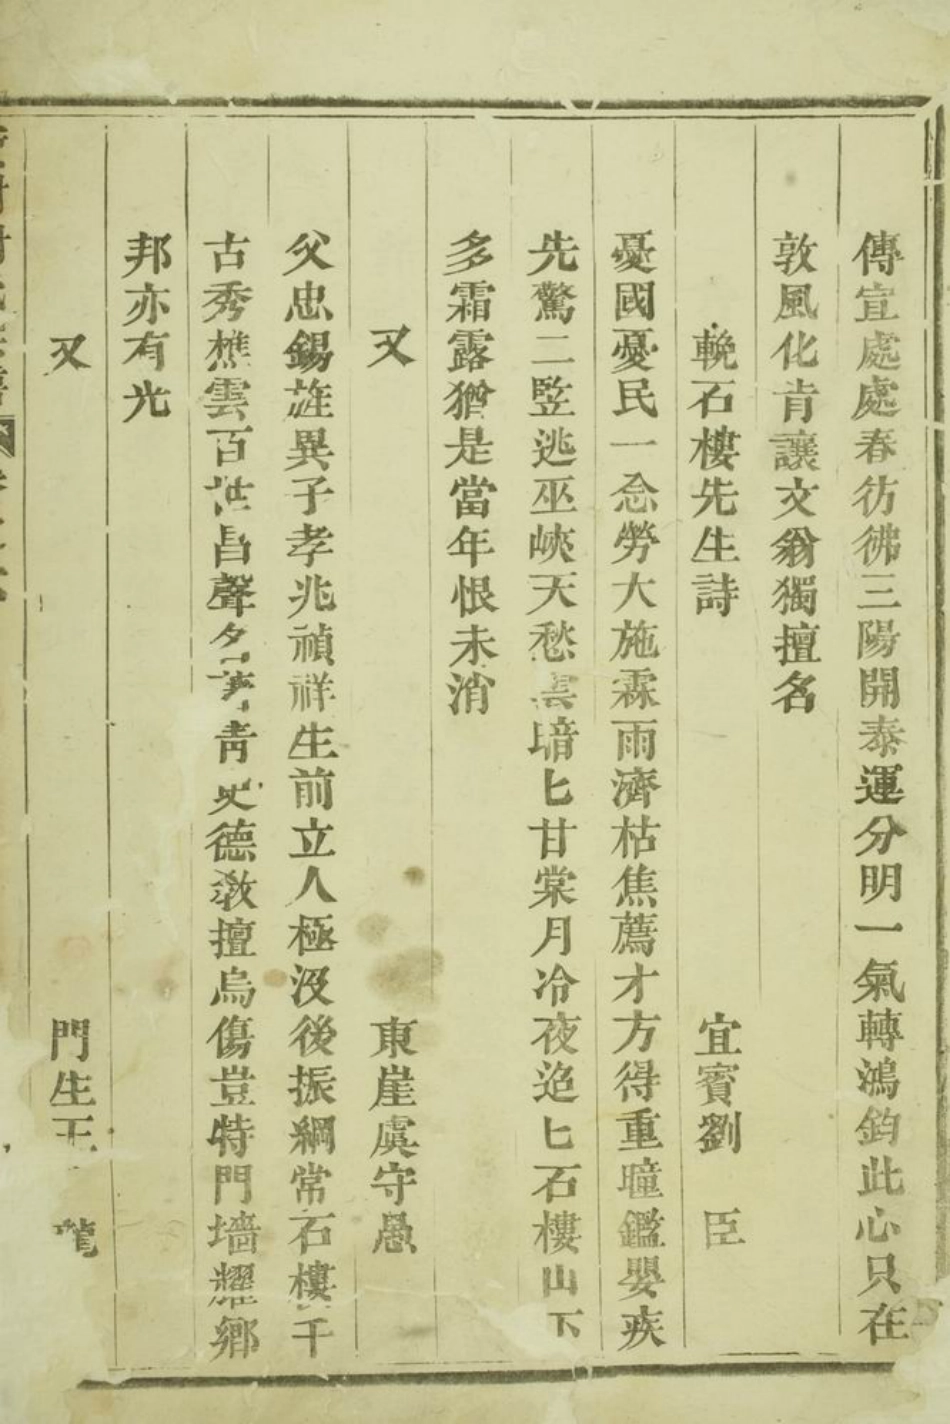 傳宣處處春彷彿三陽開泰運分明一氣轉鴻鈞此心只在
敦風化肯讓文翁獨擅名
輓石樓先生詩 宜賓劉 臣
憂國憂民一念勞大施霖雨濟枯焦薦才方得重瞳鑑嬰疾
先驚二竪逃巫峽天愁雲暗匕甘棠月冷夜迢匕石樓山下
多霜露猶是當年恨未消
又 東崖虞守愚
父忠錫旌異子孝兆禎祥生前立人極沒後振綱常石樓千
古秀樵雲百世昌聲名著青史德教擅烏傷豈特門墻耀鄉
邦亦有光
又 門生王 龍